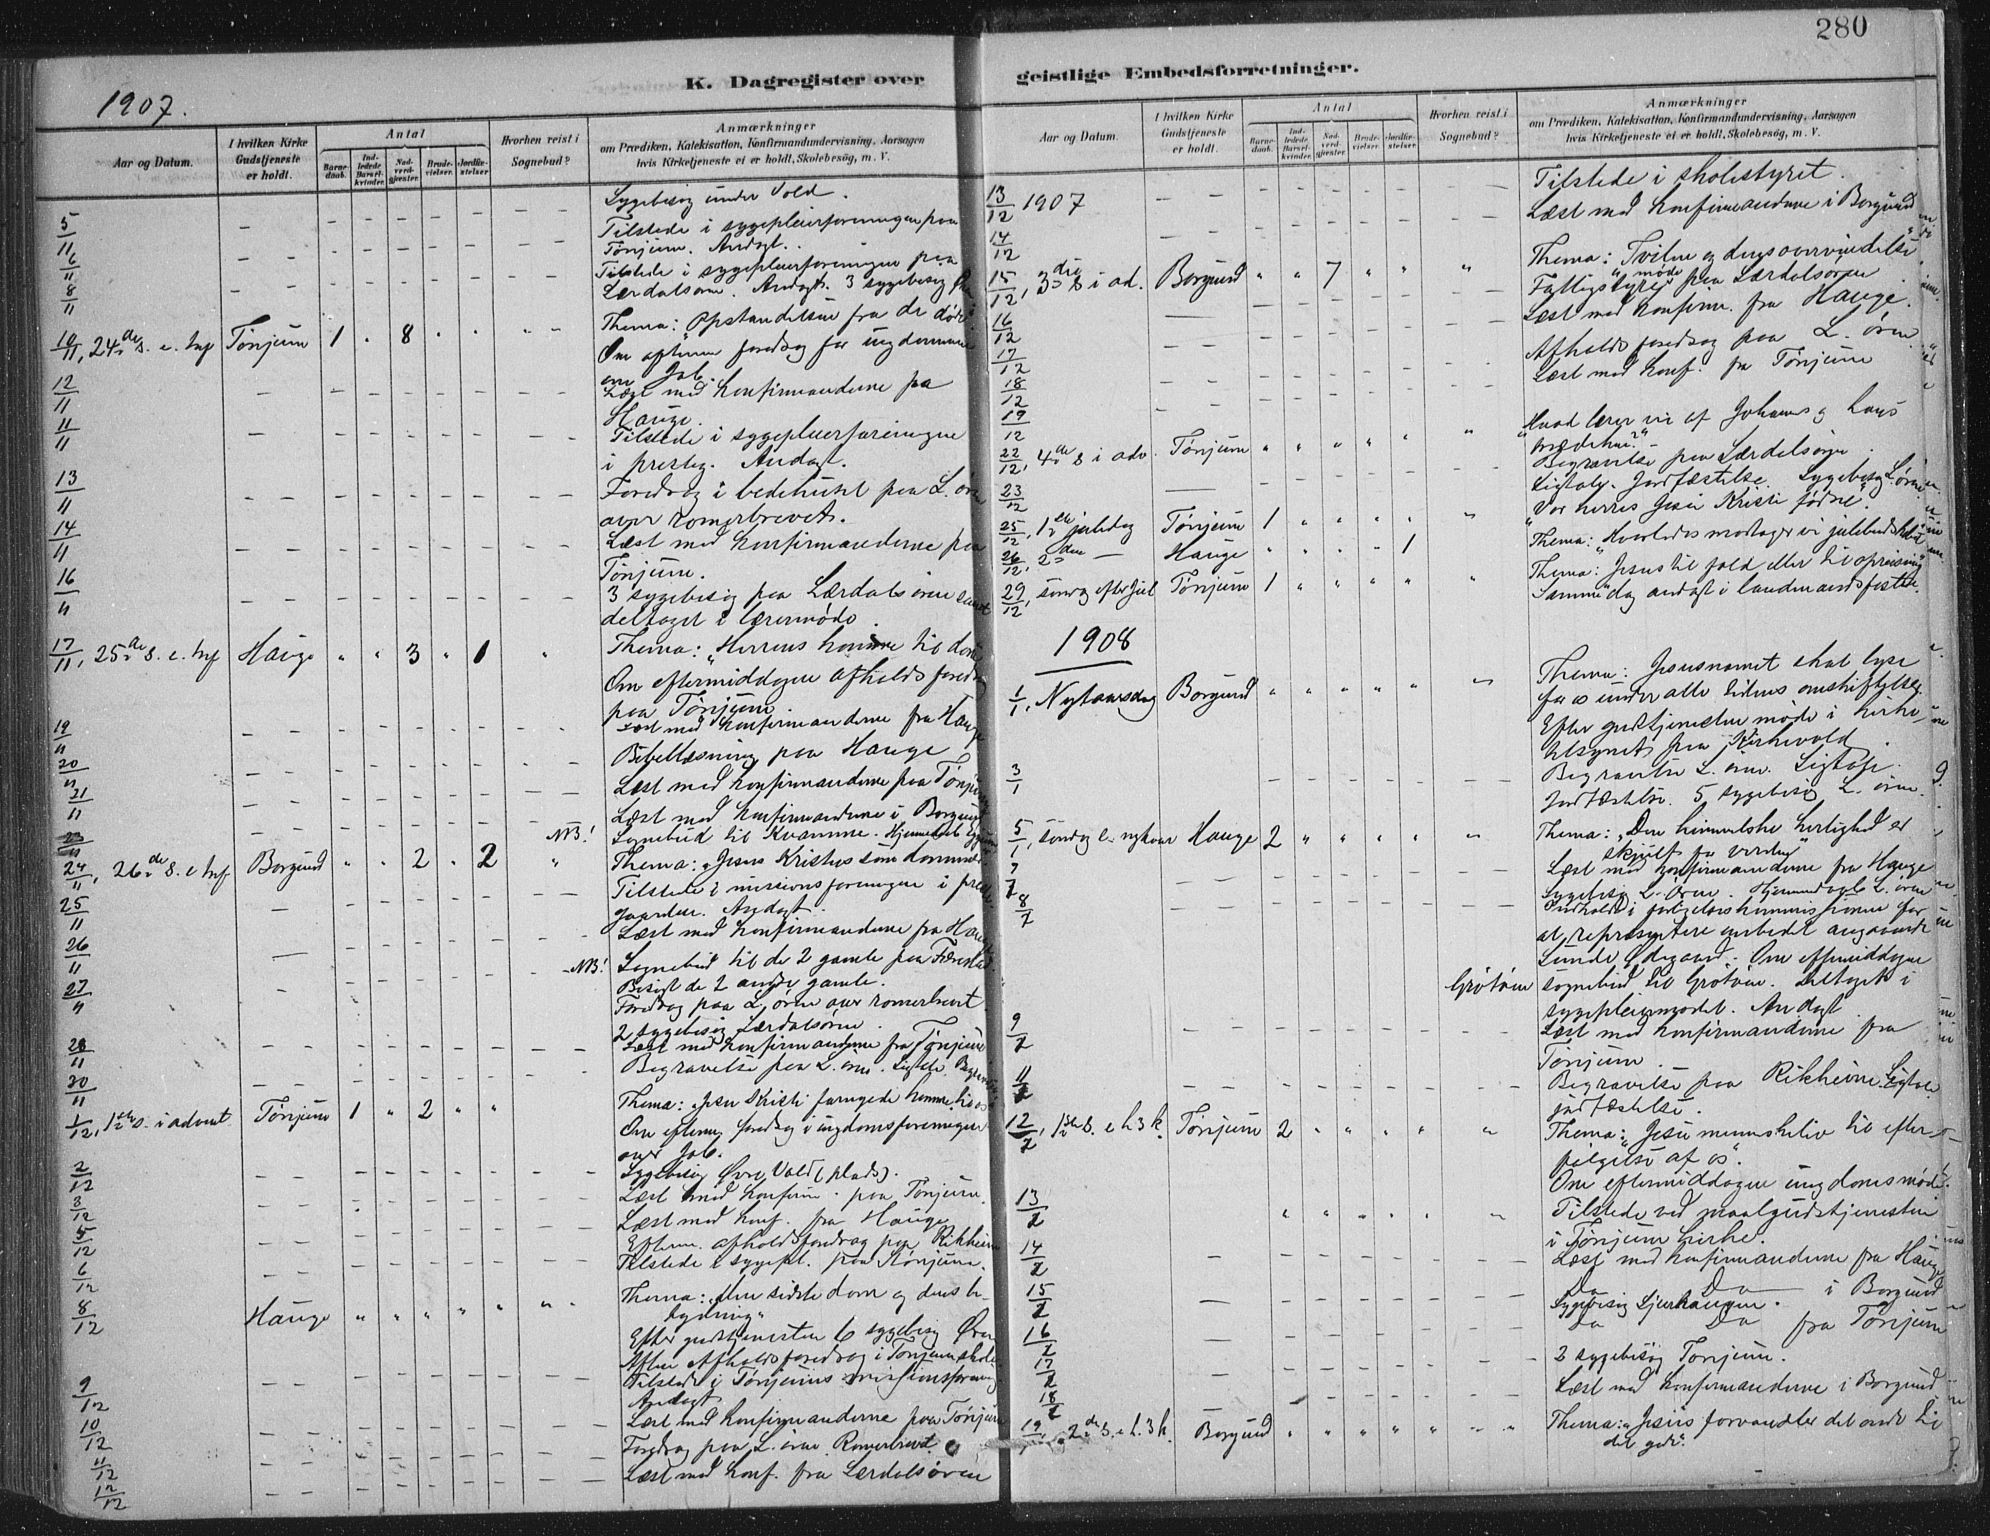 280
K. Dagregister over
geistlige Embedsforretninger.
1907.
Aar og Datum.
I hvilken Kirke Gudstjeneste er holdt.
Antal
Barnedaab.
Indledede Barselkvinder.
Nadverdgjester.
Brudevielser.
Jordfæstelser.
Hvorhen reist i Sognebud?
Anmærkninger
om Prædiken, Katekisation, Konfirmandundervisning, Aarsagen
hvis Kirketjeneste ei er holdt, Skolebesøg, m. V.
Sygebesøg under Vold.
5/11 Tilstede i sygepleierforeningen paa
Tønjum. Andagt.
6/11 Tilstede i sygepleierforeningen paa
8/11 Lærdalsøren. Andagt. 3 sygebesøg
10/11, 24de s. e. trf Tønjum 1 8 Thema: Opstandelsen fra de døde
Om aftenen foredrag for ungdommen
om Job.
12/11 Læst med konfirmanderne fra
Hauge.
11/11 Tilstede i sygepleierforeningen
i presteg. Andagt.
13/11 Foredrag i bedehuset paa L. øren
over romerbrevet.
14/11 Læst med konfirmanderne fra
Tønjum.
16/11 3 sygebesøg paa Lærdalsøren samt
deltaget i lærermøde.
17/11, 25de s. e. trf Hauge " " 3 " 1 " Thema: "Herrens komme til dom
Om eftermiddagen afholdt foredrag
paa Tønjum.
19/11 Læst med konfirmanderne fra Hauge
20/11 Bibellæsning paa Hauge
21/11 Læst med konfirmanderne fra Tønjum
Læst med konfirmanderne i Borgund
NB! Sognebud til Kvamme.
24/11, 26de s. e trf Borgund " " 2 " 2 " Thema: "Jesus Kristus som dommer
25/11 Tilstede i missionsforeningen i preste
gaarden. Andagt.
26/11 Læst med konfirmanderne fra Hauge
27/11 NB! Sognebud til de 2 gamle paa
Besøgt de 2 andre gamle.
Foredrag paa L. øren over romerbrevet.
2 sygebesøg Lærdalsøren.
28/11 Læst med konfirmanderne fra Tønjum
30/11 Begravelse paa L. øren. Ligtale.
1/12, 1ste s. i advent Tønjum 1 " 2 " " Thema: "Jesu Kristi fornyede komme til os
Om efterm. foredrag i ungdomsforeningen
over Job.
2/12 Sygebesøg Øvre Vold (plads).
3/12 Læst med konfirm. paa Tønjum.
5/12 Læst med konf. fra Hauge
Efterm. afholdt foredrag paa Rikheim
6/12 Tilstede i sygepl. paa Tønjum.
8/12 Hauge " " " " " " Thema: "Den sidste dom og dens be-
tydning"
Efter gudstjenesten 6 sygebesøg Øren
Aften afholdt foredrag i Tønjum skole
9/12 Tilstede i Tønjums missionsforening
Andagt
10/12 Læst med konfirmanderne paa Tønjum
11/12 Foredrag paa L. øren Romerbrevet.
12/12 Læst med konf. fra Lærdalsøren
Aar og Datum.
I hvilken Kirke Gudstjeneste er holdt.
Antal
Barnedaab.
Indledede Barselkvinder.
Nadverdgjester.
Brudevielser.
Jordfæstelser.
Hvorhen reist i Sognebud?
Anmærkninger
om Prædiken, Katekisation, Konfirmandundervisning, Aarsagen
hvis Kirketjeneste ei er holdt, Skolebesøg, m. V.
13/12 1907 Tilstede i skolestyret.
14/12 Læst med konfirmanderne i Borgund
15/12, 3die s i ad. Borgund " " 7 " " " Thema: Tvilen og dens overvindelse
16/12 Fattigstyremøde paa Lærdalsøren
17/12 Læst med konfirm. fra Hauge.
18/12 Afholdt foredrag paa L. øren
19/12 Læst med konf. fra Tønjum
22/12, 4de s i adv. Tønjum " " " " " " Hvad lærer vi af Johannes og hans
23/12 Begravelse paa Lærdalsøren
Ligtale. Jordfæstelse. Sygebesøg L. øren
25/12, 1ste juledag Tønjum 1 " " " " " "Vor herres Jesu Kristi fødsel"
26/12, 2den — Hauge " " " " 1 Thema: "Hvorledes modtager vi julebudskabet
29/12, søndag efter jul Tønjum 1 " " " " " Thema: Jesus til fald eller til opreisning
Samme dag andagt i landmandsfesten.
1908
1/1, Nytaarsdag Borgund " " " " " " Thema: Jesusnavnet skal lyse
for os under alle tiders omskiftelse.
Efter gudstjenesten møde i kirke
tilsynet paa Kirkevold.
3/1 Begravelse L. øren. Ligtale.
Jordfæstelse. 5 sygebesøg L. øren.
5/1, søndag e. nytaar Hauge 2 " " " " " Thema: "Den himmelske herlighed er
skjult for verden"
Læst med konfirmanderne fra Hauge
8/2 Sygebesøg L. Øren. Hjemmedaab L. øren
at repræsentere embedet angaaende
Om eftermiddagen
Grøtøren sognebud til Grøtøren. Deltaget i
sygepleiemødet. Andagt.
9/2 Læst med konfirmanderne fra
Tønjum.
11/2 Begravelse paa Rikheim. Ligtale
jordfæstelse.
12/2, 1ste s. e h3k. Tønjum 2 " " " " " Thema: "Jesu menneskeliv til efter-
følgelse af os".
Om eftermiddagen ungdomsmøde.
13/2 Tilstede ved maalgudstjenesten
i Tønjum kirke.
14/2 Læst med konfirmanderne fra Hauge
15/2 Do Do — i Borgund
Sygebesøg
16/2 Do Do fra Tønjum
17/2 2 sygebesøg Tønjum.
18/2 Læst med konfirmanderne i Borgund
19/, 2den s. e. h. 3 k. Borgund " " " " " " " Thema: "Jesus forvandler det onde til
det gode".